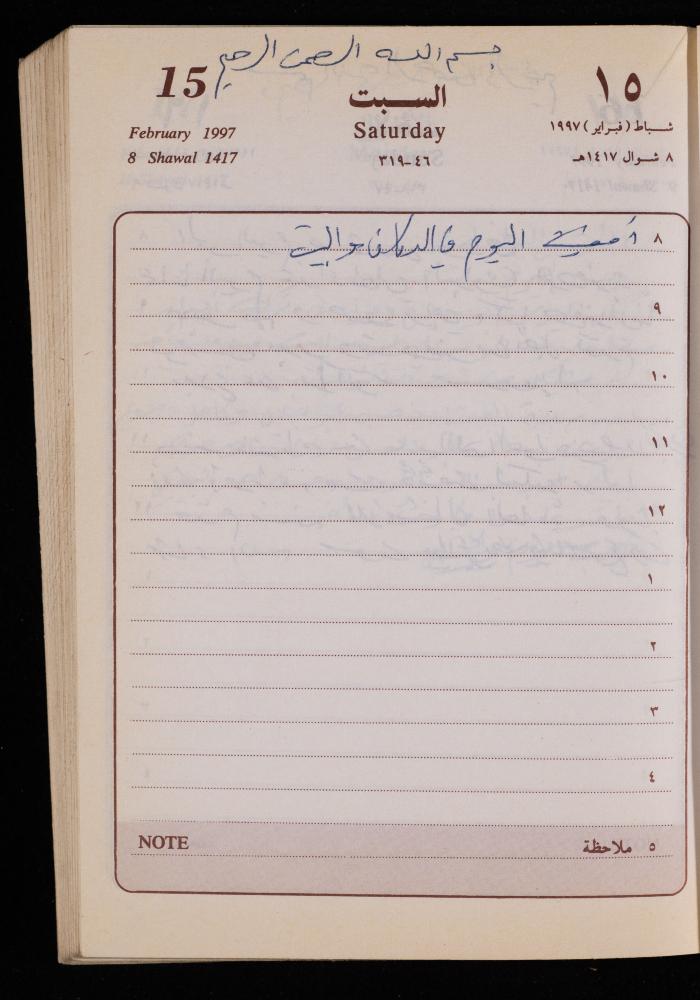 بسم الله الرحمن الرحيم
15 ١٥
السبت
February 1997 Saturday شباط (فبراير) ١٩٩٧
8 Shawal 1417 ٤٦-٣١٩ ٨ شوال ١٤١٧هـ
٨ أمضيت اليوم في الدكان والبيت
٩
١٠
١١
١٢
١
٢
٣
٤
NOTE ٥ ملاحظة